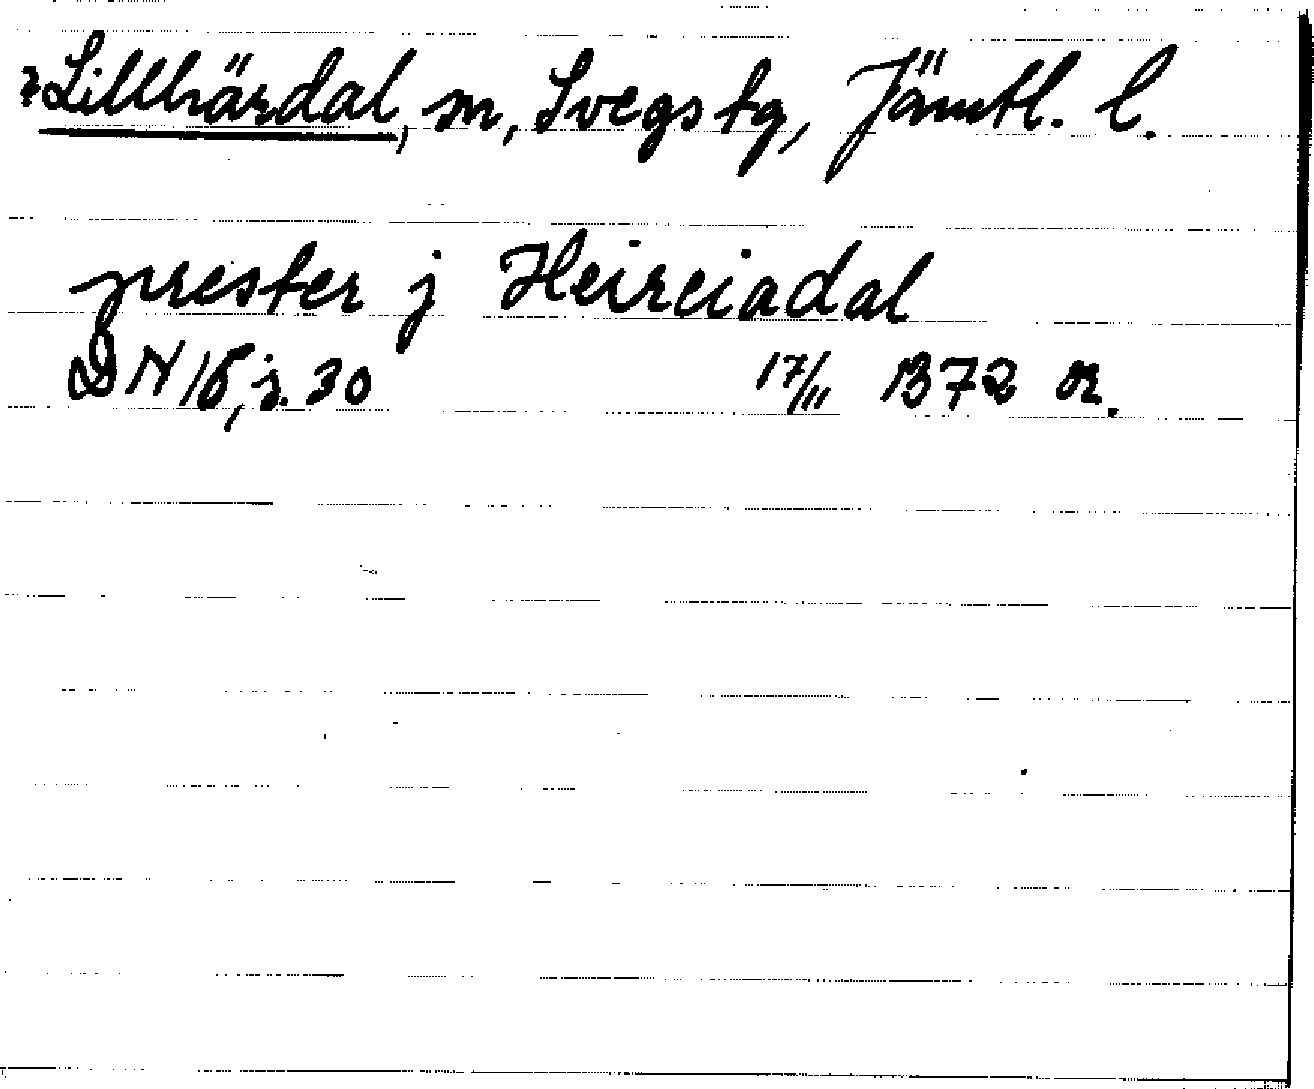 ? Lillhärdal, sn, Svegs tg, Jämtl. l.
prester j Heireiadal
DN 16, s. 30 17/11 1372 or.